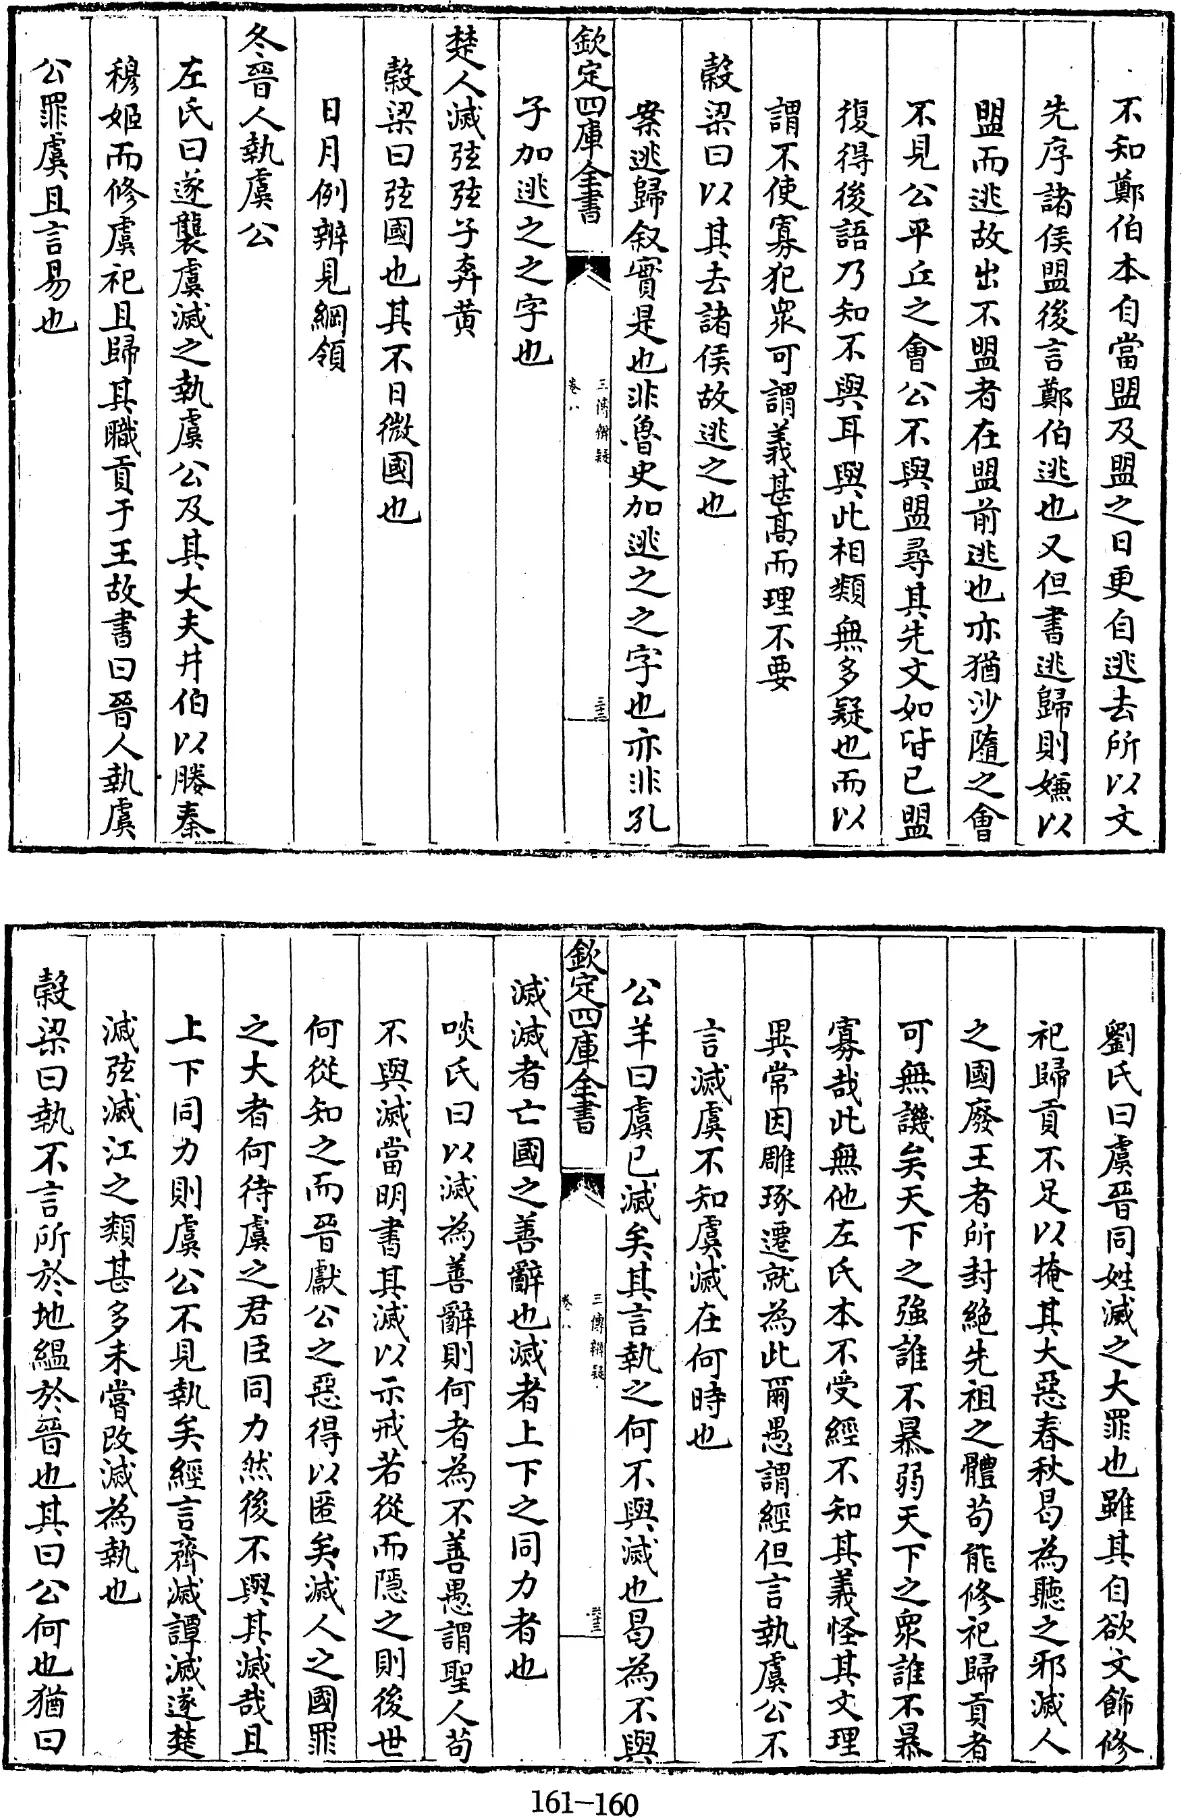 不知鄭伯本自當盟及盟之日更自逃去所以文
先序諸侯盟後言鄭伯逃也又但書逃歸則嫌以
盟而逃故出不盟者在盟前逃也亦猶沙隨之會
不見公平丘之會公不與盟尋其先文如皆已盟
復得後語乃知不與耳與此相類無多疑也而以
謂不使寡犯衆可謂義甚高而理不要
穀梁曰以其去諸侯故逃之也
案逃歸叙實是也非魯史加逃之之字也亦非孔
欽定四庫全書
三傳辨疑
卷八
三十二
子加逃之之字也
楚人滅弦弦子奔黄
穀梁曰弦國也其不日微國也
日月例辨見綱領
冬晉人執虞公
左氏曰遂襲虞滅之執虞公及其大夫井伯以媵秦
穆姬而修虞祀且歸其職貢于王故書曰晉人執虞
公罪虞且言易也
劉氏曰虞晉同姓滅之大罪也雖其自欲文飾修
祀歸貢不足以掩其大惡春秋曷為聽之邪滅人
之國廢王者所封絶先祖之體苟能修祀歸貢者
可無譏矣天下之強誰不暴弱天下之衆誰不暴
寡哉此無他左氏本不受經不知其義怪其文理
異常因雕琢遷就為此爾愚謂經但言執虞公不
言滅虞不知虞滅在何時也
公羊曰虞已滅矣其言執之何不與滅也曷為不與
欽定四庫全書
三傳辨疑
卷八
三十三
滅滅者亡國之善辭也滅者上下之同力者也
啖氏曰以滅為善辭則何者為不善愚謂聖人苟
不與滅當明書其滅以示戒若從而隱之則後世
何從知之而晉獻公之惡得以匿矣滅人之國罪
之大者何待虞之君臣同力然後不與其滅哉且
上下同力則虞公不見執矣經言齊滅譚滅遂楚
滅弦滅江之類甚多未嘗改滅為執也
穀梁曰執不言所於地緼於晉也其曰公何也猶曰
161-160